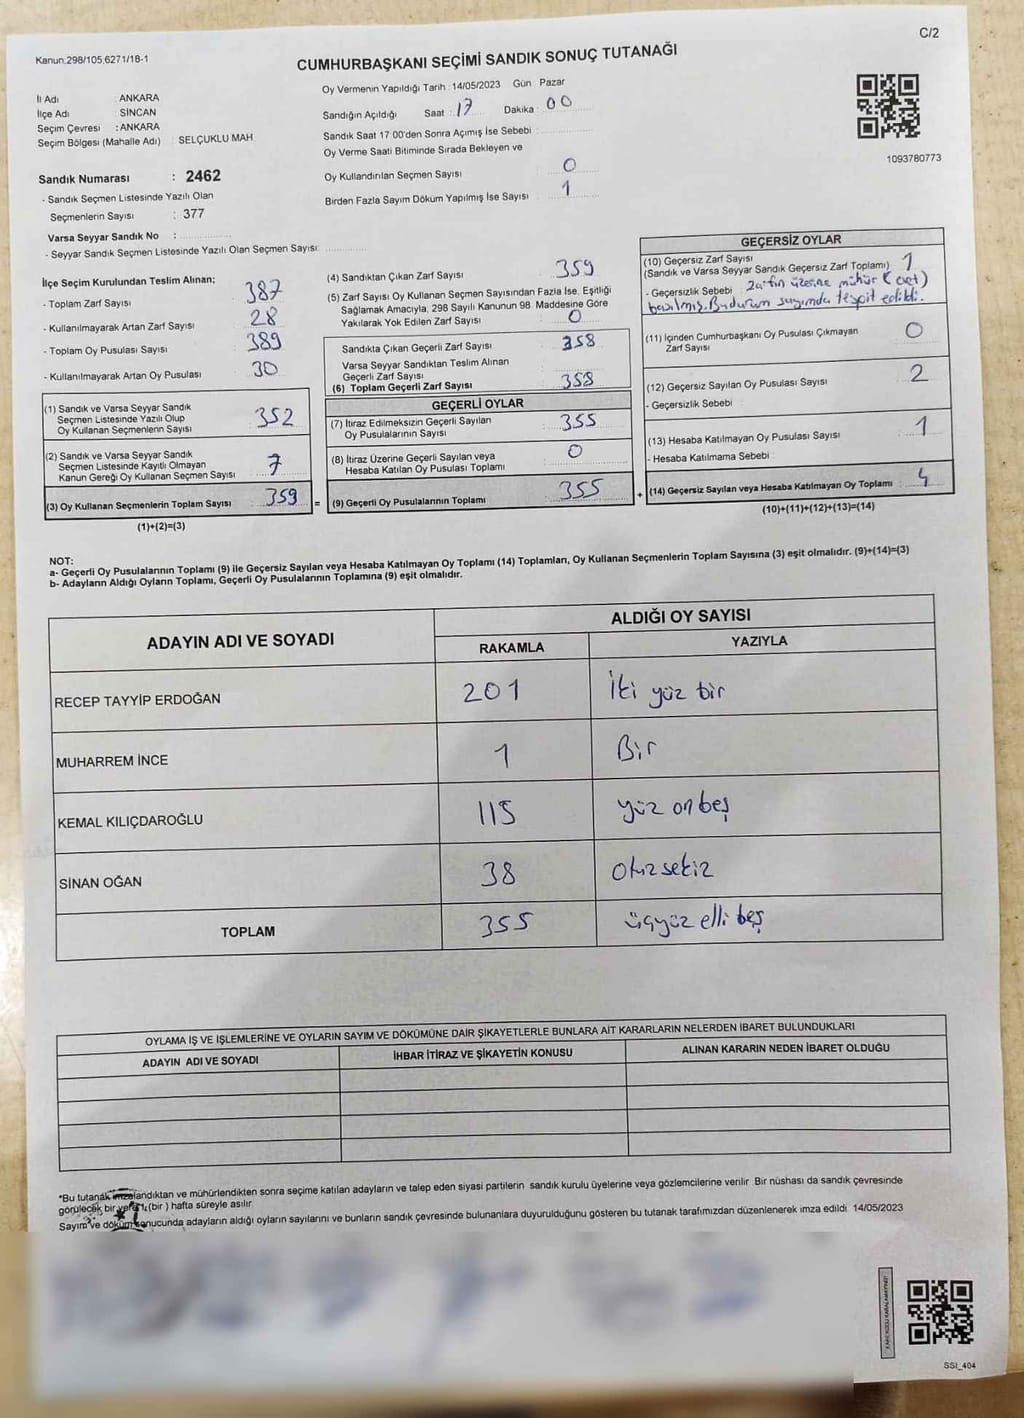 C/2
Kanun:298/105,6271/18-1
CUMHURBAŞKANI SEÇİMİ SANDIK SONUÇ TUTANAĞI
Oy Vermenin Yapıldığı Tarih : 14/05/2023 Gün : Pazar
İl Adı : ANKARA
İlçe Adı : SİNCAN
Seçim Çevresi : ANKARA
Seçim Bölgesi (Mahalle Adı) : SELÇUKLU MAH
Sandığın Açıldığı Saat : 17 Dakika : 00
Sandık Saat 17:00'den Sonra Açımış İse Sebebi :
Oy Verme Saati Bitiminde Sırada Bekleyen ve
Oy Kullandırılan Seçmen Sayısı : 0
Birden Fazla Sayım Döküm Yapılmış İse Sayısı : 1
1093780773
Sandık Numarası : 2462
- Sandık Seçmen Listesinde Yazılı Olan
Seçmenlerin Sayısı : 377
Varsa Seyyar Sandık No :
- Seyyar Sandık Seçmen Listesinde Yazılı Olan Seçmen Sayısı:
İlçe Seçim Kurulundan Teslim Alınan;
- Toplam Zarf Sayısı : 387
- Kullanılmayarak Artan Zarf Sayısı : 28
- Toplam Oy Pusulası Sayısı : 389
- Kullanılmayarak Artan Oy Pusulası : 30
(1) Sandık ve Varsa Seyyar Sandık
Seçmen Listesinde Yazılı Olup
Oy Kullanan Seçmenlerin Sayısı : 352
(2) Sandık ve Varsa Seyyar Sandık
Seçmen Listesinde Kayıtlı Olmayan
Kanun Gereği Oy Kullanan Seçmen Sayısı : 7
(3) Oy Kullanan Seçmenlerin Toplam Sayısı : 359
(1)+(2)=(3)
(4) Sandıktan Çıkan Zarf Sayısı : 359
(5) Zarf Sayısı Oy Kullanan Seçmen Sayısından Fazla İse, Eşitliği
Sağlamak Amacıyla, 298 Sayılı Kanunun 98. Maddesine Göre
Yakılarak Yok Edilen Zarf Sayısı : 0
Sandıkta Çıkan Geçerli Zarf Sayısı : 358
Varsa Seyyar Sandıktan Teslim Alınan
Geçerli Zarf Sayısı :
(6) Toplam Geçerli Zarf Sayısı : 358
GEÇERLİ OYLAR
(7) İtiraz Edilmeksizin Geçerli Sayılan
Oy Pusulalarının Sayısı : 355
(8) İtiraz Üzerine Geçerli Sayılan veya
Hesaba Katılan Oy Pusulası Toplamı : 0
= (9) Geçerli Oy Pusulalarının Toplamı : 355
GEÇERSİZ OYLAR
(10) Geçersiz Zarf Sayısı
(Sandık ve Varsa Seyyar Sandık Geçersiz Zarf Toplamı) : 1
- Geçersizlik Sebebi : Zarfın üzerine mühür (evet)
basılmış. Bu durum sayımda tespit edildi.
(11) İçinden Cumhurbaşkanı Oy Pusulası Çıkmayan
Zarf Sayısı : 0
(12) Geçersiz Sayılan Oy Pusulası Sayısı : 2
- Geçersizlik Sebebi :
(13) Hesaba Katılmayan Oy Pusulası Sayısı : 1
- Hesaba Katılmama Sebebi :
+ (14) Geçersiz Sayılan veya Hesaba Katılmayan Oy Toplamı : 4
(10)+(11)+(12)+(13)=(14)
NOT:
a- Geçerli Oy Pusulalarının Toplamı (9) ile Geçersiz Sayılan veya Hesaba Katılmayan Oy Toplamı (14) Toplamları, Oy Kullanan Seçmenlerin Toplam Sayısına (3) eşit olmalıdır. (9)+(14)=(3)
b- Adayların Aldığı Oyların Toplamı, Geçerli Oy Pusulalarının Toplamına (9) eşit olmalıdır.
ADAYIN ADI VE SOYADI
ALDIĞI OY SAYISI
RAKAMLA YAZIYLA
RECEP TAYYİP ERDOĞAN 201 İki yüz bir
MUHARREM İNCE 1 Bir
KEMAL KILIÇDAROĞLU 115 yüz on beş
SİNAN OĞAN 38 Otuz sekiz
TOPLAM 355 üçyüz elli beş
OYLAMA İŞ VE İŞLEMLERİNE VE OYLARIN SAYIM VE DÖKÜMÜNE DAİR ŞİKAYETLERLE BUNLARA AİT KARARLARIN NELERDEN İBARET BULUNDUKLARI
ADAYIN ADI VE SOYADI İHBAR İTİRAZ VE ŞİKAYETİN KONUSU ALINAN KARARIN NEDEN İBARET OLDUĞU
*Bu tutanak imzalandıktan ve mühürlendikten sonra seçime katılan adayların ve talep eden siyasi partilerin sandık kurulu üyelerine veya gözlemcilerine verilir. Bir nüshası da sandık çevresinde
görülecek bir yere 1 (bir ) hafta süreyle asılır.
Sayım ve döküm sonucunda adayların aldığı oyların sayılarını ve bunların sandık çevresinde bulunanlara duyurulduğunu gösteren bu tutanak tarafımızdan düzenlenerek imza edildi. 14/05/2023
SSI_404